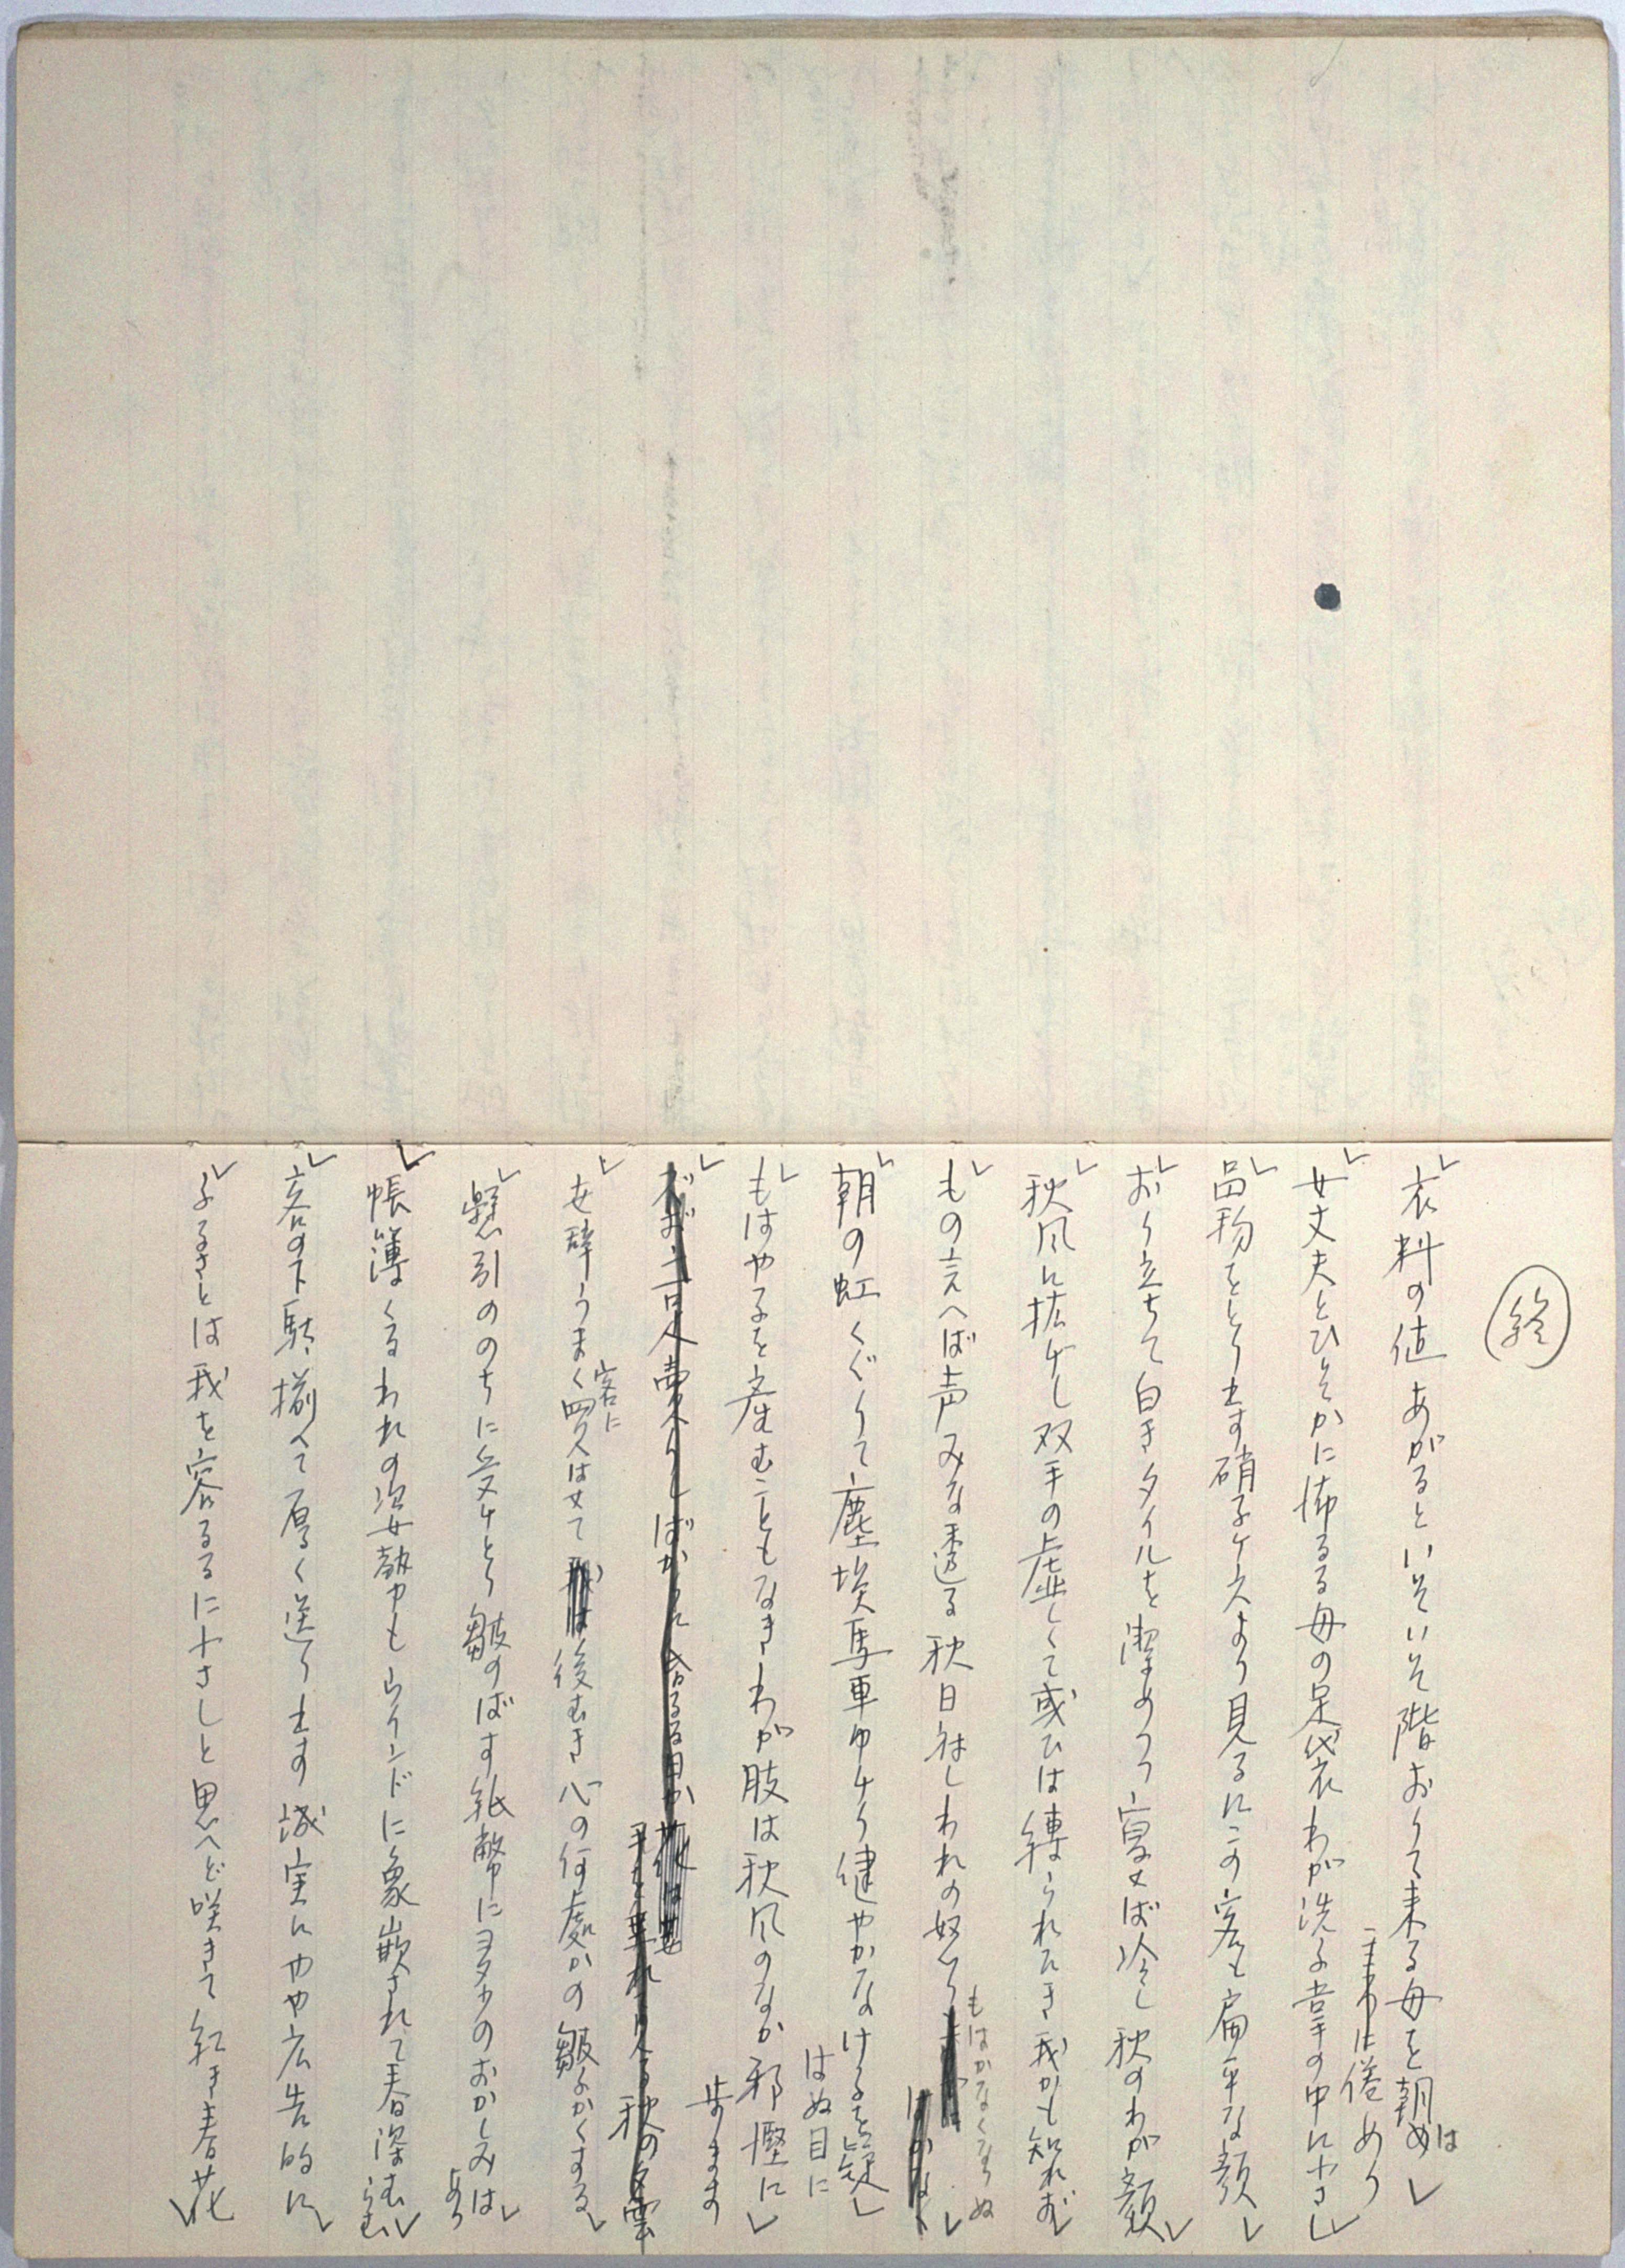 終
衣料の値あがるといそいそ階おりて来る母を朝は
女丈夫とひそかに怖るる母の足袋わが洗ふ掌の中に小さし
品物をとり出す硝子ケースより見るにこの客も扁平な顔
おり立ちて白きタイルを潔めつつ寡黙ば冷し秋のわが顔
秋風に拡げし双手の虚しくて或ひは縛られたき我かも知れず
もの言へば声みな透る秋日射しわれの怒り
もはかなくなりぬ
朝の虹くぐりて塵埃馬車ゆけり健やかなけるを疑
はぬ目に
もはや子を産むこともなきわが肢は秋風のなか邪慳に
歩ます
世辞うまく客に買はせて後むき心の何處かの皺ふかくする
懸引ののちに受けとり皺のばす紙幣に多少のおかしみは
あり
帳簿くるわれの姿勢もウインドに象嵌されて春深むらむ
客の下駄揃へて厚く送り出す誠実にやや広告的に
ふるさとは我を容るるに小さしと思へど咲きて紅き春花